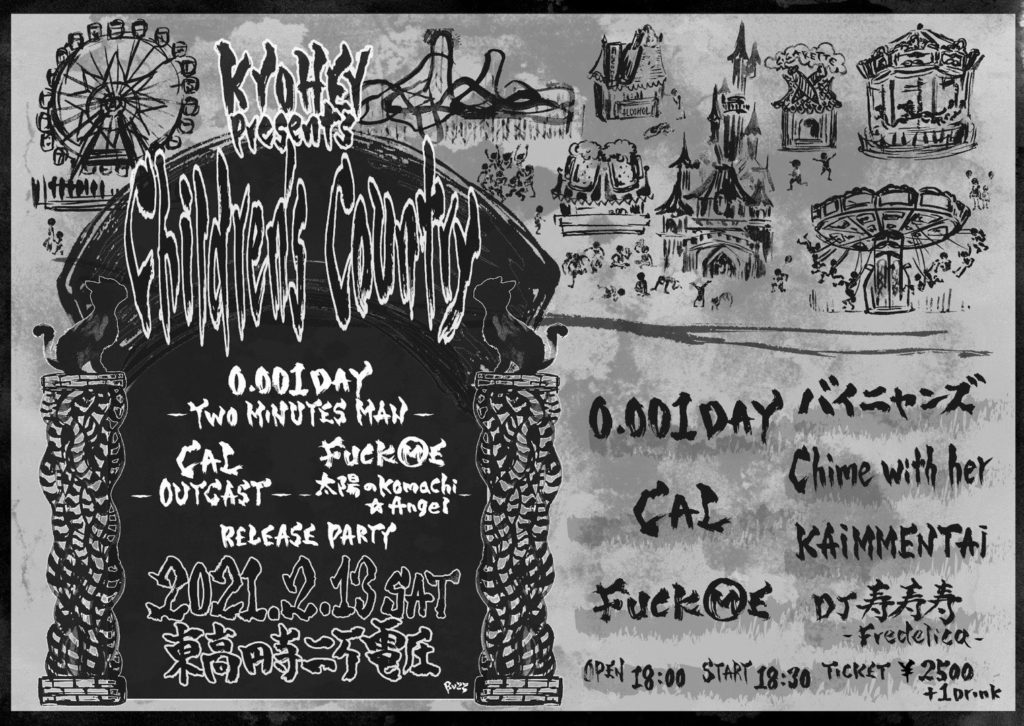 KYOHEY
Presents
Children's County
0.001DAY
-TWO MINUTES MAN-
CAL
-OUTCAST-
FUCKME
-太陽のKomachi
☆Angel
RELEASE PARTY
2021.2.13 SAT
東高円寺二万電圧
ALCOHOL
0.001DAY
CAL
FUCKME
バイニャンズ
Chime with her
KAiMMENTAi
DJ寿寿寿
-Fredelica-
OPEN 18:00 START 18:30 TiCKET ¥2500
+1Drink